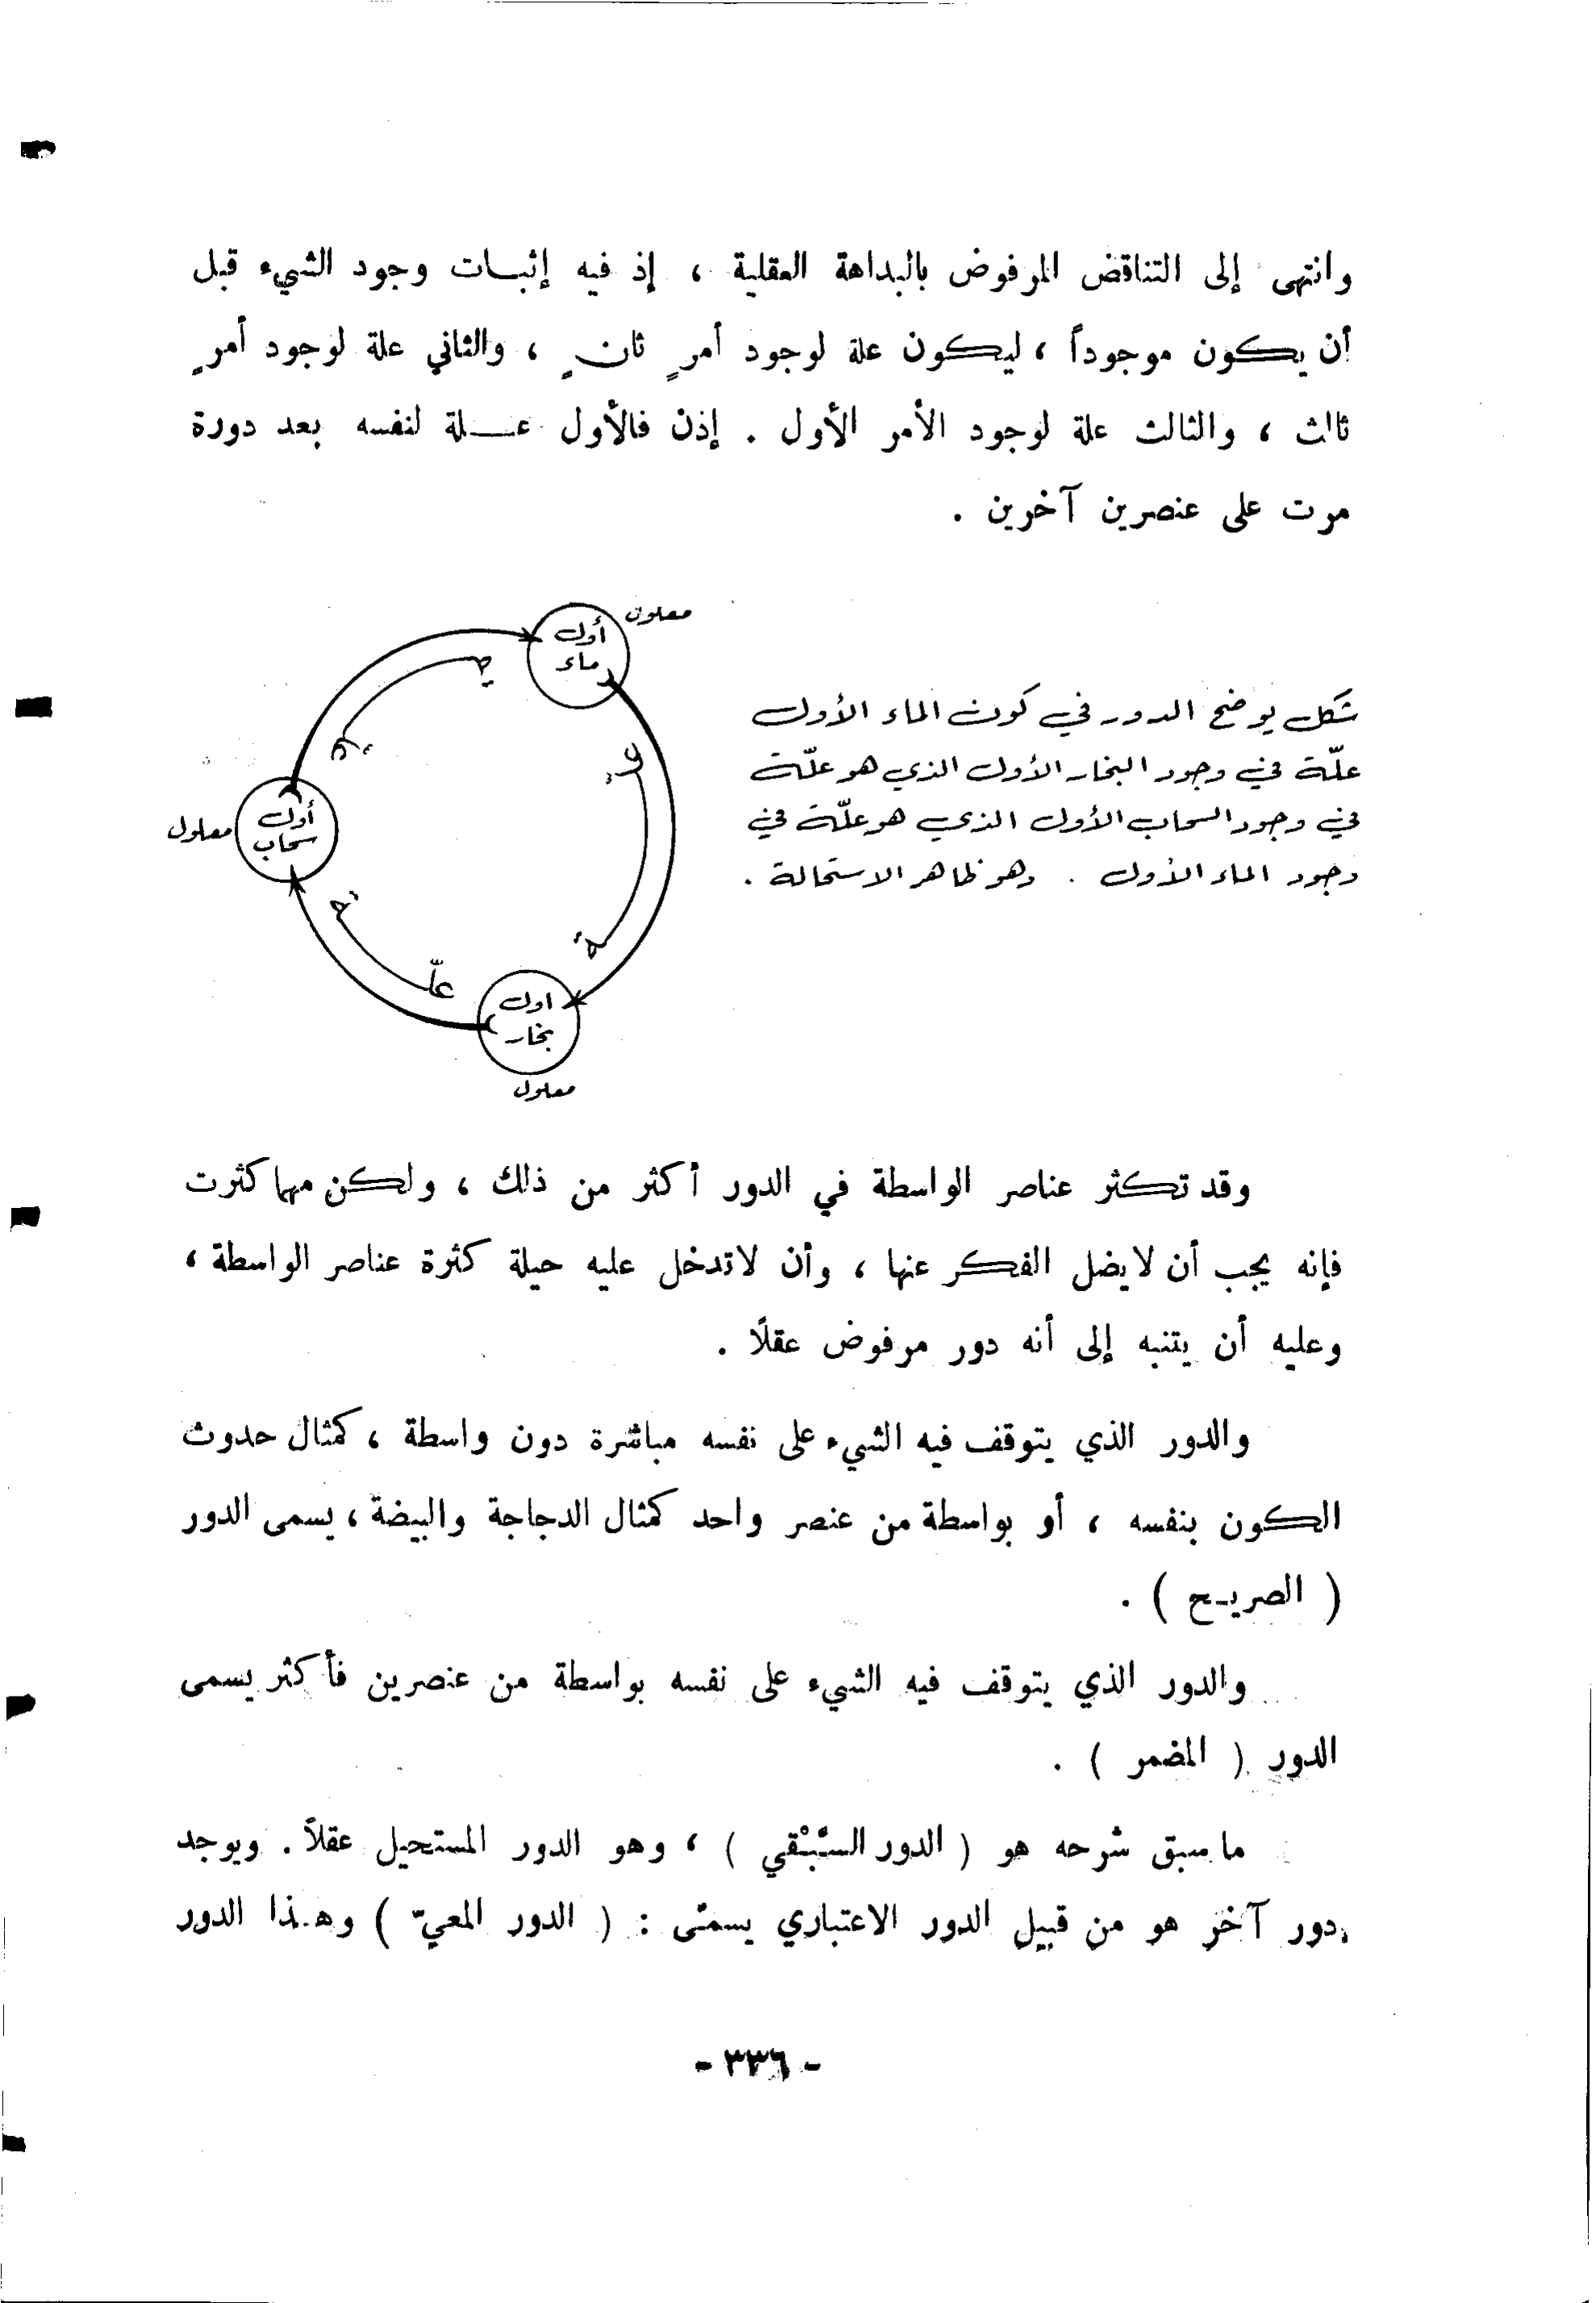 وانتهى إلى التناقض المرفوض بالبداهة العقلية ، إذ فيه إثبات وجود الشيء قبل
أن يكون موجوداً ، ليكون علة لوجود أمرٍ ثانٍ ، والثاني علة لوجود أمرٍ
ثالث ، والثالث علة لوجود الأمر الأول . إذن فالأول علة لنفسه بعد دورة
مرت على عنصرين آخرين .
معلول
أول
ماء
علة
شكل يوضح الدور في كون الماء الأول
علّة في وجود البخار الأول الذي هو علّة
في وجود السحاب الأول الذي هو علّة في
وجود الماء الأول . وهو ظاهر الاستحالة .
أول
سحاب
معلول
علّة
اول
بخار
معلول
وقد تكثر عناصر الواسطة في الدور أكثر من ذلك ، ولكن مهما كثرت
فإنه يجب أن لا يضل الفكر عنها ، وأن لا تدخل عليه حيلة كثرة عناصر الواسطة ،
وعليه أن يتنبه إلى أنه دور مرفوض عقلًا .
والدور الذي يتوقف فيه الشيء على نفسه مباشرة دون واسطة ، كمثال حدوث
الكون بنفسه ، أو بواسطة من عنصر واحد كمثال الدجاجة والبيضة ، يسمى الدور
( الصريح ) .
والدور الذي يتوقف فيه الشيء على نفسه بواسطة من عنصرين فأكثر يسمى
الدور ( المضمر ) .
ما سبق شرحه هو ( الدور السَّبْقي ) ، وهو الدور المستحيل عقلاً . ويوجد
دور آخر هو من قبيل الدور الاعتباري يسمّى : ( الدور المعيّ ) وهذا الدور
- ٣٣٦ -